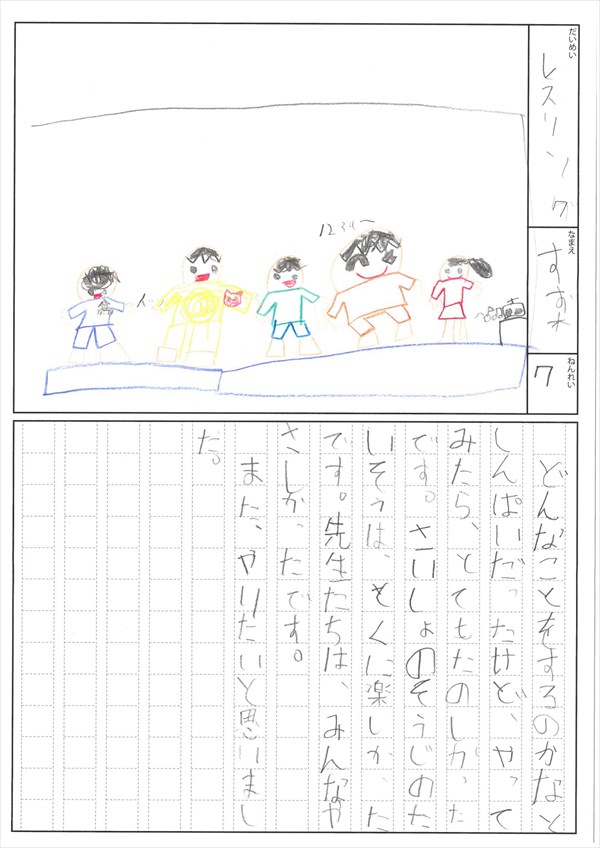 だいめい
レスリング
なまえ
ねんれい
7
1234〜
どんなことをするのかなと
しんぱいだったけど、やって
みたら、とてもたのしかった
です。さいしょのそうじのた
いそうは、とくに楽しかった
です。先生たちは、みんなや
さしかったです。
また、やりたいと思いまし
た。